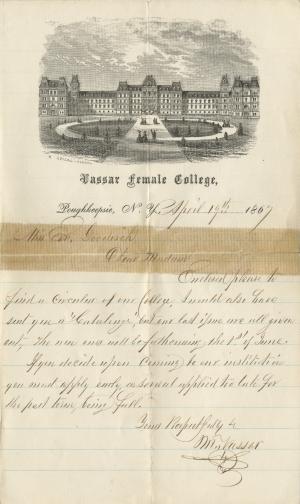 Vassar Female College,
Poughkeepsie, N. Y. April 19th 1867
Dear Madam
Enclosed please to
find a Circular of our College, I would also have
sent you a "Catalogue", but our last issue are all given
out, The new one will be forthcoming the 1st of June.
If you decide upon coming to our institution
you must apply early, as several applied too late for
the past term, being full.
Yours Respectfully &
M. Vassar